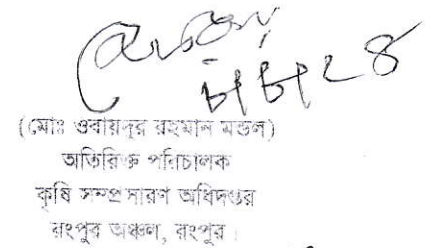 ৮৮২৪
(মোঃ ওবায়দুর রহমান মন্ডল)
অতিরিক্ত পরিচালক
কৃষি সম্প্রসারণ অধিদপ্তর
রংপুর অঞ্চল, রংপুর।